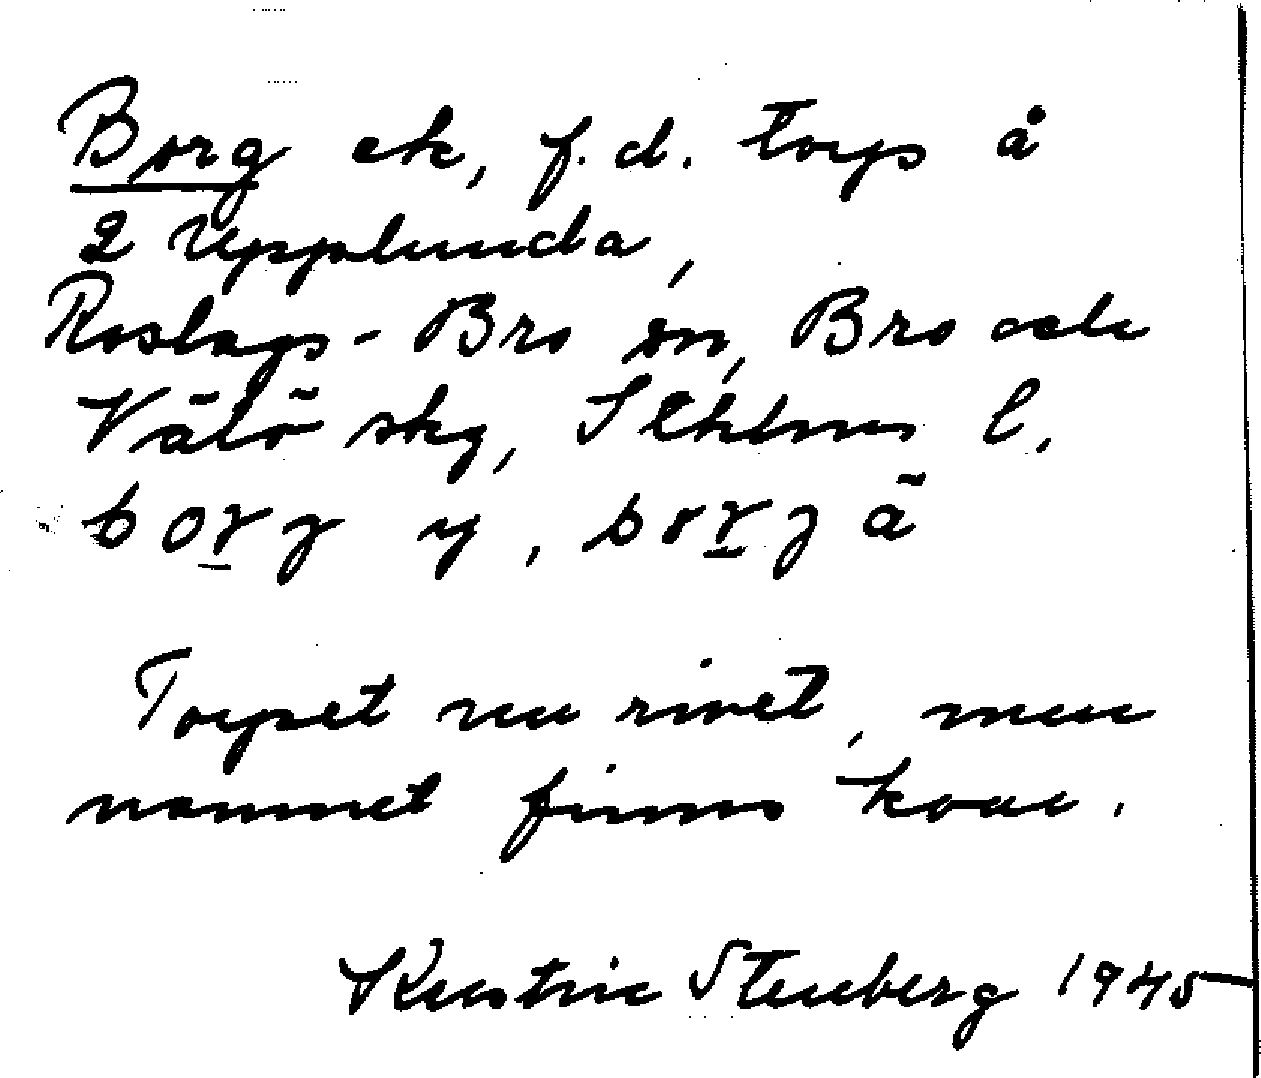 Borg ek, f.d. torp å
2 Upplunda,
Roslags-Bro sn, Bro och
Vätö skg, Sthlms l.
borj y, borj ä
Torpet nu rivet, men
namnet finns kvar.
Kerstin Stenberg 1945